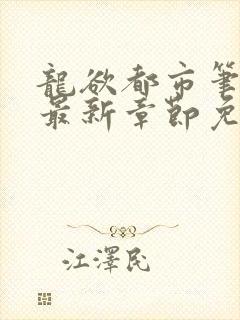 龍欲都市筆
最新章節免
江澤民